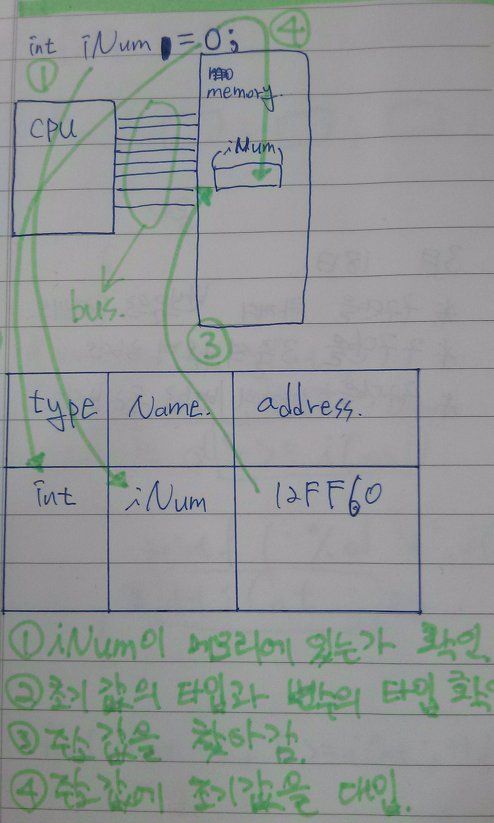 int iNum = 0;
①
④
CPU
memory.
iNum
bus.
③
type Name. address.
int iNum 12FF60
① iNum이 메모리에 있는가 확인.
② 초기값의 타입과 변수의 타입 확
③ 주소값을 찾아감.
④ 주소값에 초기값을 대입.